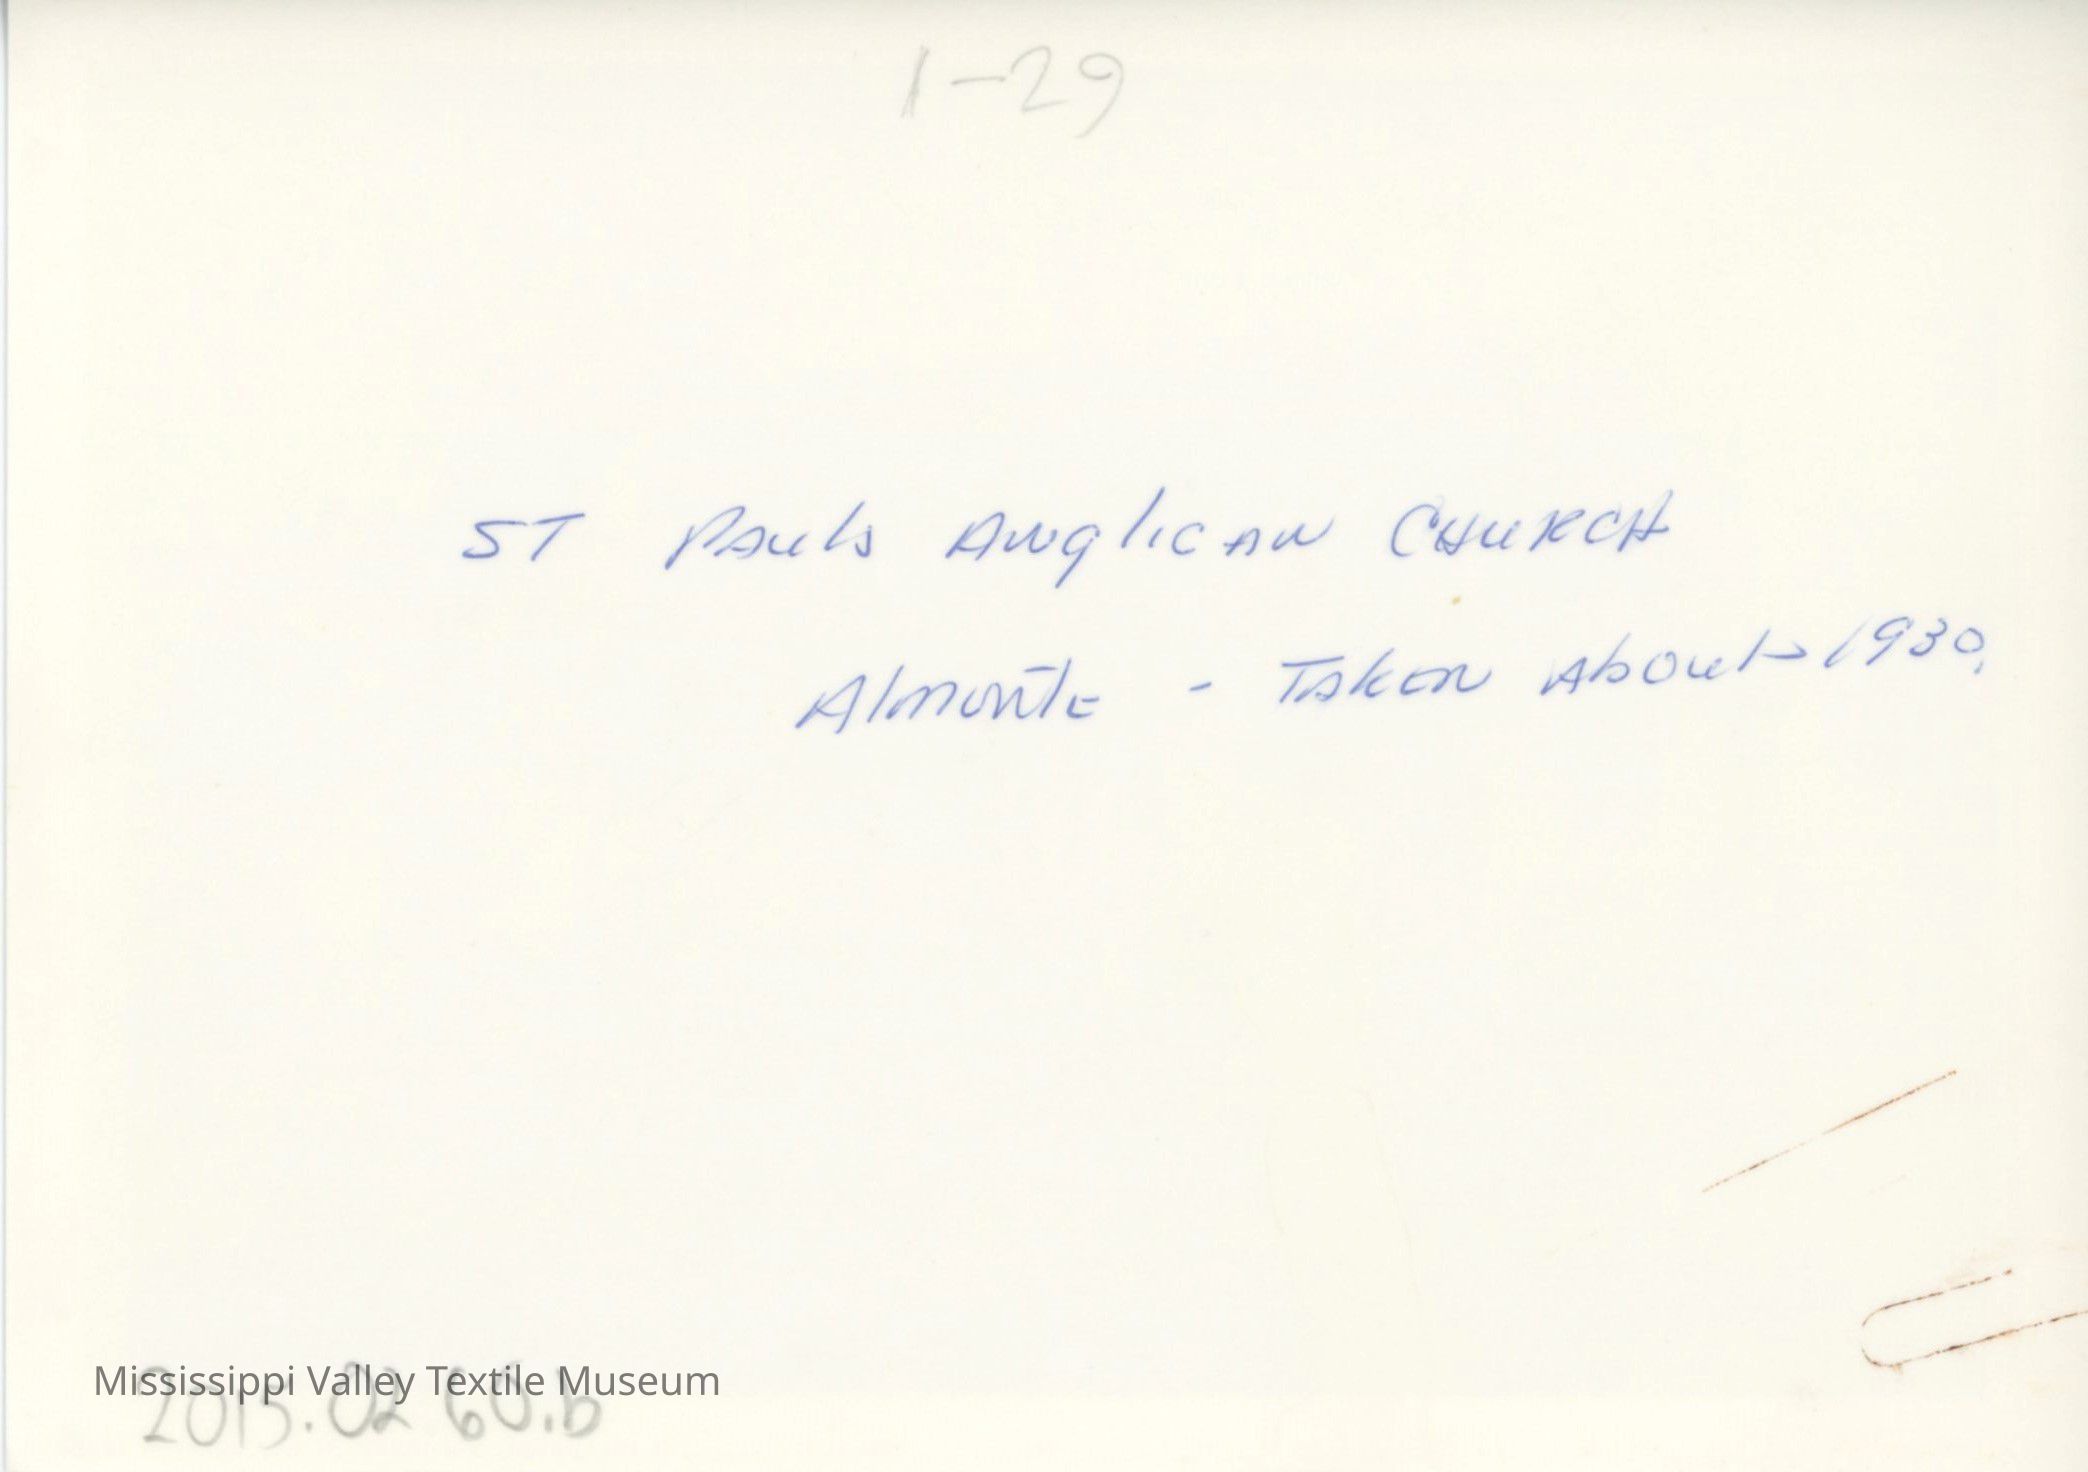 1-29
ST Pauls Anglican CHURCH
Almonte - Taken About 1930.
Mississippi Valley Textile Museum
2015.02 60.b